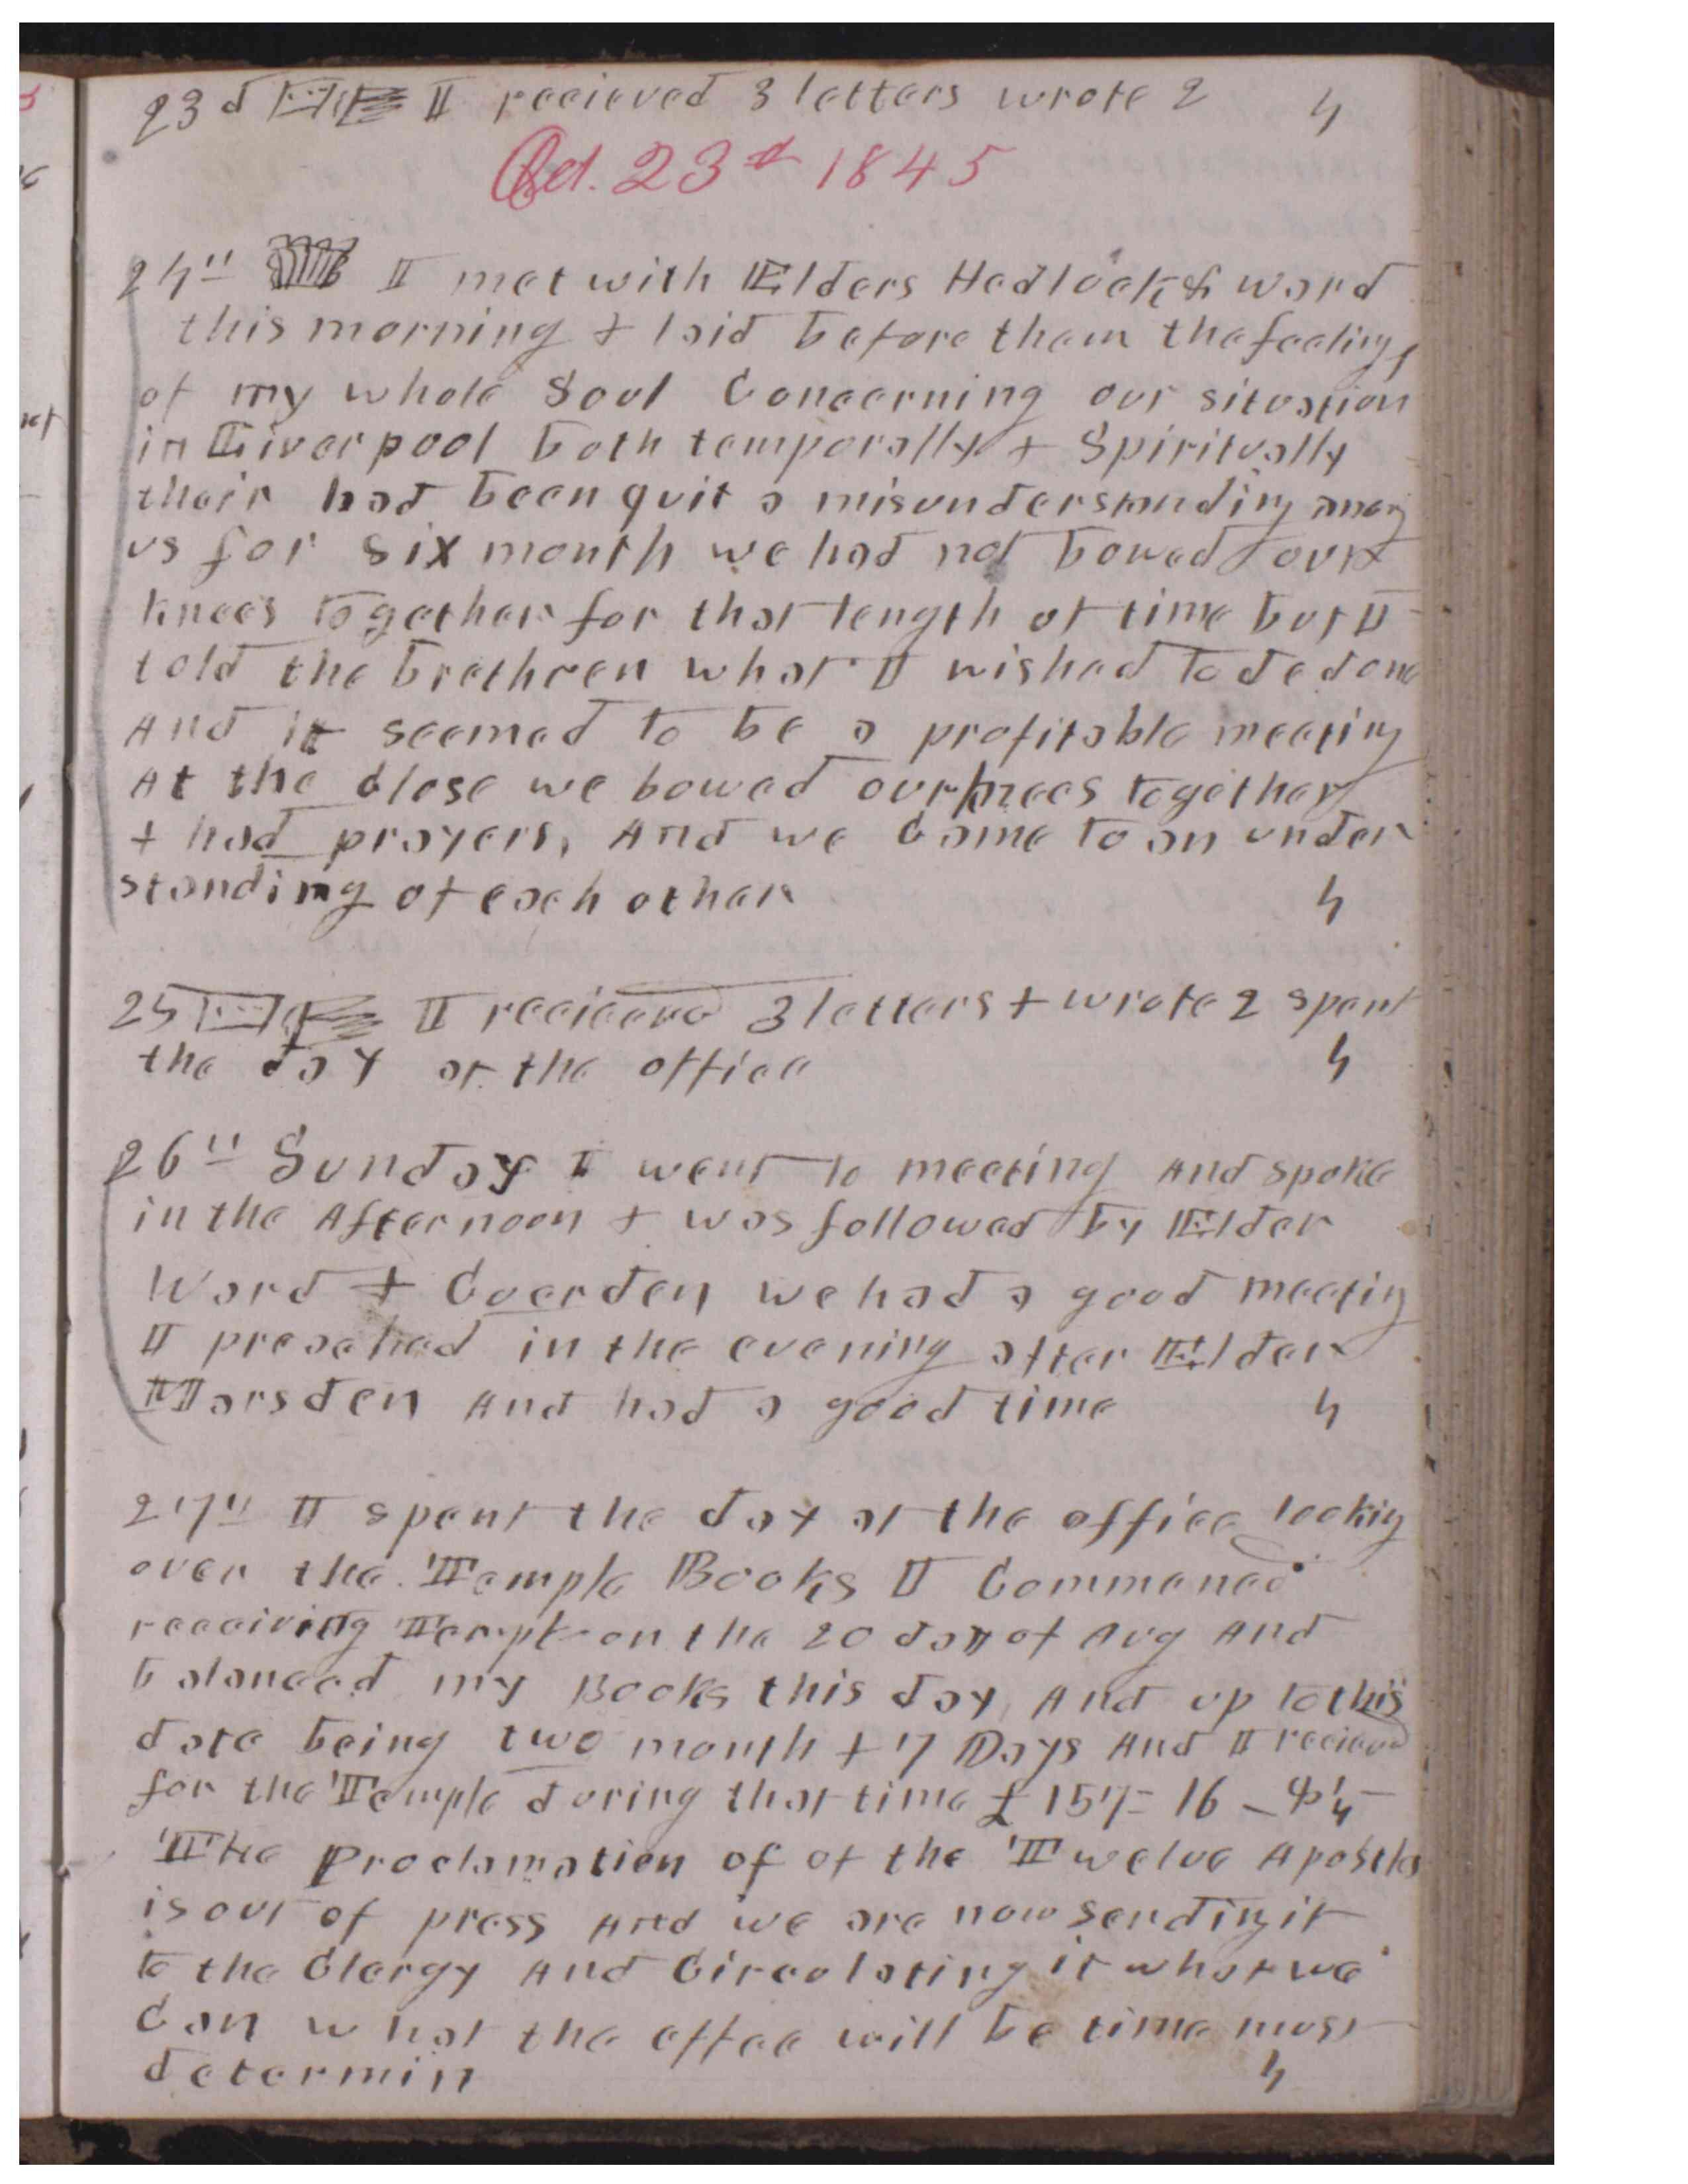 23d I recieved 3 letters wrote 2 4
Oct. 23d 1845
24th I met with Elders Hedlock & Ward
this morning & laid before them the feelings
of my whole Soul Concerning our situation
in Liverpool both temporally & Spiritually
their had been quit a misunderstanding among
us for six month we had not bowed our
knees together for that length of time but I
told the brethren what I wished to de done
And it seemed to be a profitable meeting
At the close we bowed our knees together
& had prayers, And we Came to an under
standing of each other 4
25 I recieved 3 letters & wrote 2 spent
the day at the office 4
26th Sunday I went to meeting And spoke
in the Afternoon & was followed by Elder
Ward & Cuerden we had a good meeting
I preached in the evening after Elder
Marsden And had a good time 4
27th I spent the day at the office looking
over the Temple Books I Commenced
receiving on the 20 day of Aug And
balanced my Books this day, And up to this
date being two month & 7 Days And I recieved
for the Temple during that time £157= 16 -
The Proclamation of of the Twelve Apostles
is out of press And we are now sending it
to the Clergy And Circulating it what we
Can what the effec will be time must
determin 4